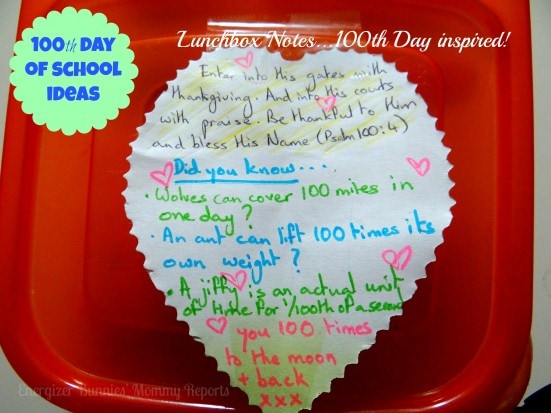 100th DAY
OF SCHOOL
IDEAS
Lunchbox Notes...100th Day inspired!
Enter into His gates with
thankgiving. And into His courts
with praise. Be thankful to Him
and bless His Name (Psalm 100:4)
Did you know...
• Wolves can cover 100 miles in
one day?
• An ant can lift 100 times its
own weight?
• A jiffy is an actual unit
of time for 1/100th of a second
you 100 times
to the moon
+ back
xxx
Energizer Bunnies' Mommy Reports